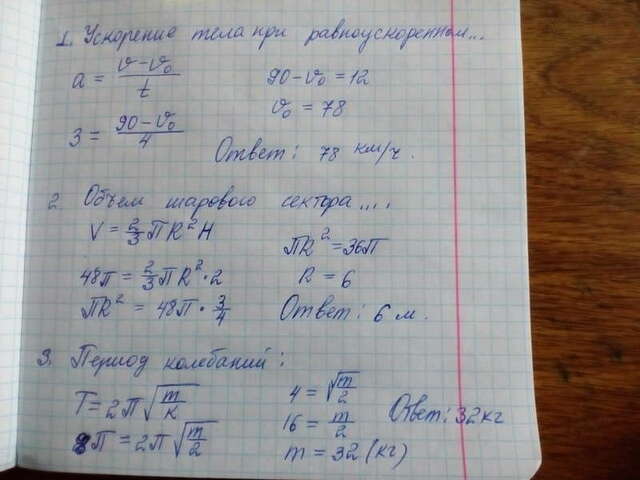 1. Ускорение тела при равноускоренном...
a = (v-v₀)/t
90-v₀ = 12
v₀ = 78
3 = (90-v₀)/4
Ответ: 78 км/ч.
2. Объем шарового сектора....
V = 2/3 πR²H
πR² = 36π
48π = 2/3 πR²·2
R = 6
πR² = 48π · 3/4
Ответ: 6 м.
3. Период колебаний:
T = 2π√(m/k)
4 = √(m/2)
Ответ: 32 кг
16 = m/2
8π = 2π√(m/2)
m = 32 (кг)